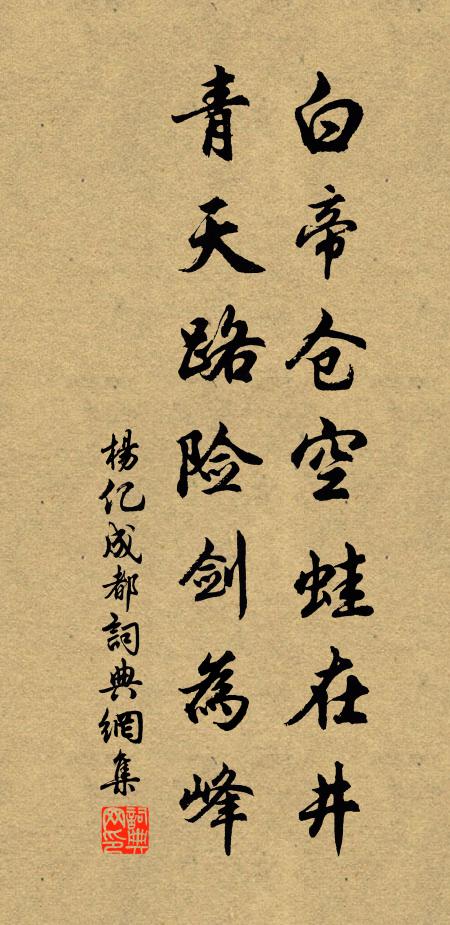 白帝仓空蛙在井
青天路险剑為峰
楊亿成都詞典網集
詞典网印